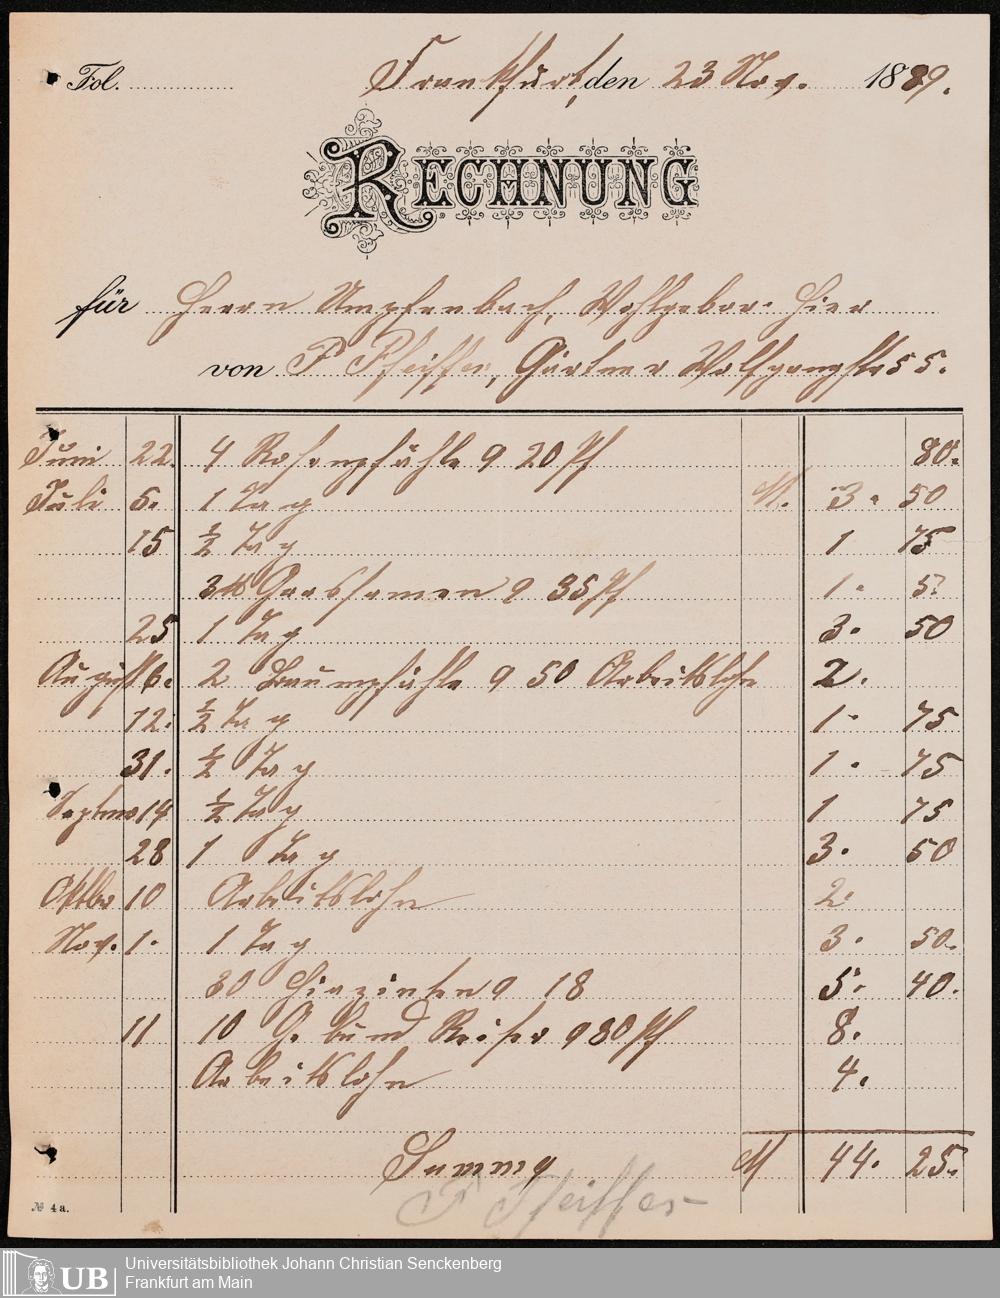 Fol. Frankfurt, den 23 Nov. 1889.
RECHNUNG
für Herrn Umpfenbach, Wohlgebor. Hier
von P Pfeiffer, Gärtner Wolfgangstr 55.
Juni 22. 4 Rosenpfähle a 20 Pf 80.
Juli 6. 1 Tag M. 3. 50
15 ½ Tag 1 75
3 ℔ Grassamen a 35 Pf 1. 5.
25 1 Tag 3. 50
August 6. 2 Baumpfähle a 50 Arbeitslohn 2.
12. ½ Tag 1. 75
31. ½ Tag 1. 75
Septmr 14 ½ Tag 1 75
28 1 Tag 3. 50
Oktbr 10 Arbeitslohn 2.
Nov. 1. 1 Tag 3. 50.
30 Hiazinten a 18 5. 40.
11 10 Gebund Reiser a 80 Pf 8.
Arbeitslohn 4.
Summa M 44. 25.
P Pfeiffer
№ 4a.
UB Universitätsbibliothek Johann Christian Senckenberg
Frankfurt am Main